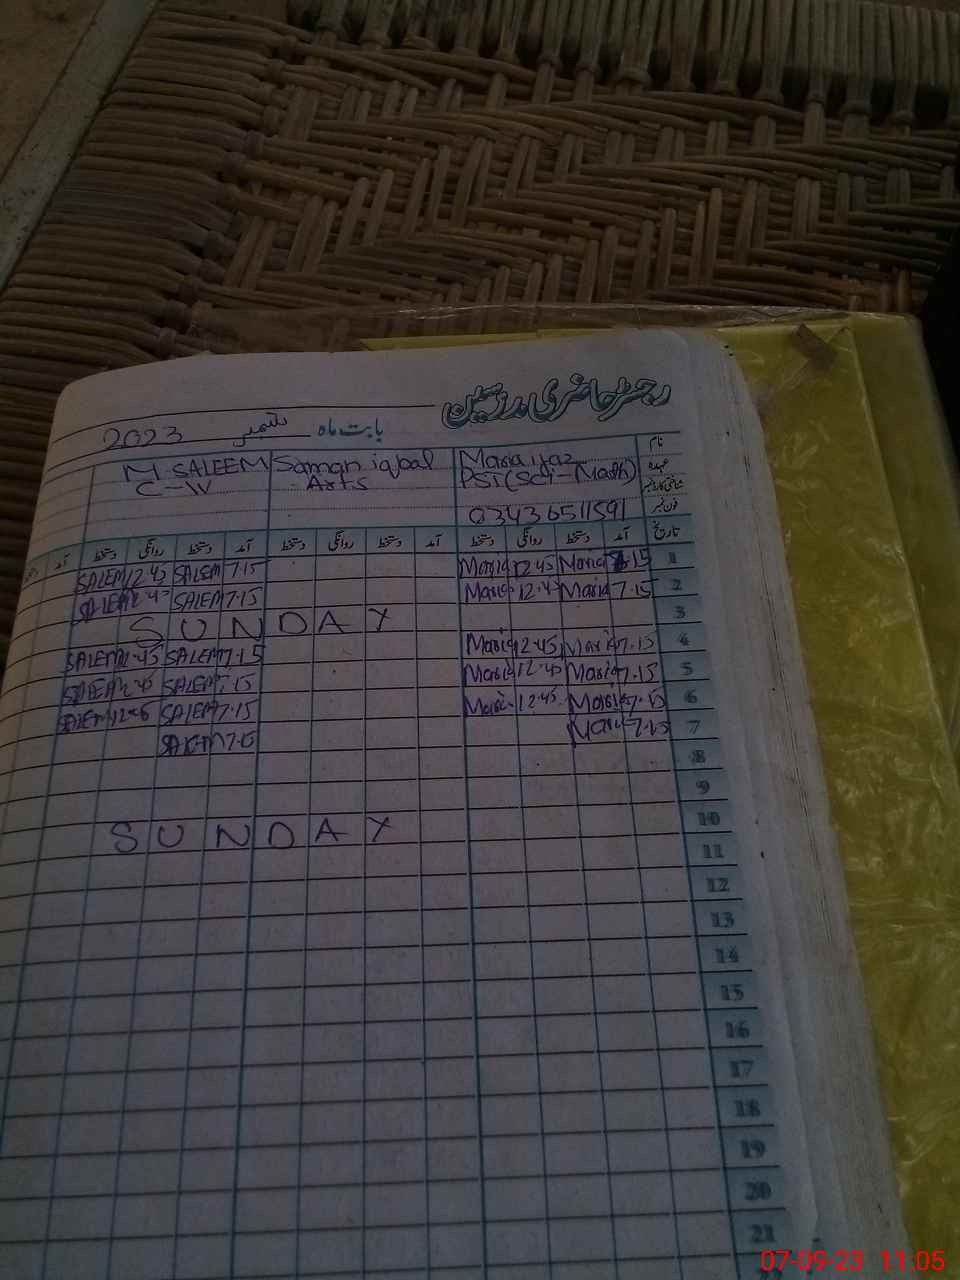 رجسٹر حاضری مدرسین
بابت ماہ ستمبر 2023
نام Maria yaz Saman iqbal M. SALEEM
عہدہ PST (Sci-Math) Arts C-IV
شناختی کارڈ نمبر
فون نمبر 03436511591
تاریخ آمد دستخط روانگی دستخط آمد دستخط روانگی دستخط آمد دستخط روانگی دستخط آمد
1 7.15 Maria 12.45 Maria 7.15 SALEEM 12.45 SALEEM
2 7.15 Maria 12.45 Maria 7.15 SALEEM 12.45 SALEEM
3 SUNDAY
4 7.15 Maria 12.45 Maria 7.15 SALEEM 12.45 SALEEM
5 7.15 Maria 12.45 Maria 7.15 SALEEM 12.45 SALEEM
6 7.15 Maria 12.45 Maria 7.15 SALEEM 12.45 SALEEM
7 7.15 Maria 7.15 SALEEM
8
9
10 SUNDAY
11
12
13
14
15
16
17
18
19
20
21
07-09-23 11:05